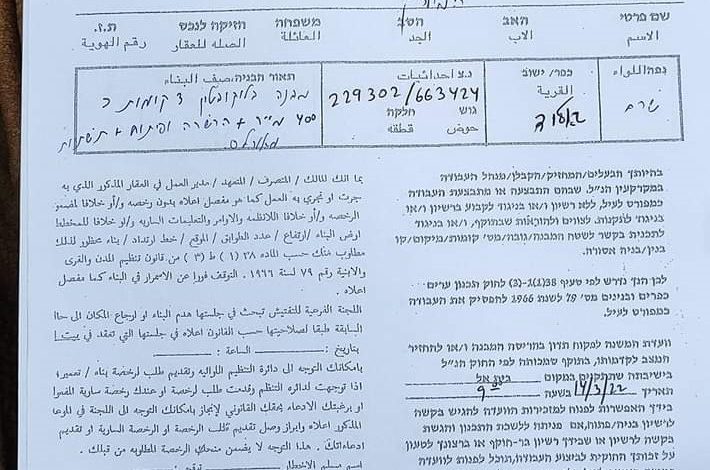 שם פרטי האב הסב משפחה הזיקה לנכס ת.ז.
الاسم الاب الجد العائلة الصله للعقار رقم الهوية
נפה/לווא כפר/ישוב נ.צ احداثيات תאור הבניה/وصف البناء
القرية 229302/663424 מבנה בלוקים
גוש חלקה
حوض قطعه
בהיותך הבעלים/המחזיק/הקבלן/מנהל העבודה
במקרקעין הנ"ל, שבהם התבצעה או מתבצעת העבודה
כמפורט לעיל, ללא רשיון ו/או בניגוד לקבוע ברשיון ו/או
בניגוד לתקנות, לצווים ולהוראות שבתוקף, ו/או בניגוד
לתכנית בקשר לשטח המבנה/גובה/מס' קומות/מיקום/קו
בנין/בניה אסורה.
לכן הנך נדרש לפי סעיף 38(1)(3-) לחוק תכנון ערים
כפרים ובנינים מס' 79 לשנת 1966 להפסיק את העבודה
כמפורט לעיל.
וועדת המשנה לפקוח תדון בהריסת המבנה ו/או להחזיר
המצב לקדמותו, בתוקף סמכותה לפי החוק הנ"ל
בישיבתה שתתקיים במקום בית אל
תאריך 14/3/22 בשעה 9:00
בידך האפשרות לפנות למזכירות הוועדה להגיש בקשה
לרשיון בניה/פתוח, אם פניתה ללשכת התכנון והגשת
בקשה לרשיון או שבידך רשיון בר-תוקף או ברצונך לטעון
על זכותך החוקית לביצוע העבודה, תוכל לפנות לוועדה
بما انك المالك / المتصرف / المتعهد / مدير العمل في العقار المذكور الذي به
جرت او تجري به العمل كما هو مفصل اعلاه بدون رخصه و/أو خلافا لمضمون
الرخصه و/أو خلافا للانظمه والاوامر والتعليمات الساريه و/أو خلافا للمخطط
لوض البناء /ارتفاع / عدد الطوابق / الموقع / خط ارتداد / بناء محظور لذلك
مطلوب منك حسب الماده ٣٨ (١) ط (٣) من قانون تنظيم المدن والقرى
والابنية رقم ٧٩ لسنة ١٩٦٦ التوقف فورا عن الاستمرار في البناء كما مفصل
اعلاه .
اللجنة الفرعية للتفتيش تبحث في جلستها هدم البناء او ارجاع المكان الى حالته
السابقة طبقا لصلاحيتها حسب القانون اعلاه في جلستها التي تعقد في
بتاريخ: الساعة :
بامكانك التوجه الى دائرة التنظيم اللوائيه وتقديم طلب لرخصة بناء / تعمير
اذا توجهت لدائره التنظيم وقدمت طلب لرخصة او عندك رخصة سارية المفعول
او برغبتك الادعاء بحقك القانوني لإنجاز بامكانك التوجه الى اللجنة في الموعد
المذكور اعلاه وابراز وصل تقديم طلب الرخصة او الرخصة السارية او تقديم
ادعاءاتك . هذا التوجه لا يضمن منحك الرخصة المطلوبه من قبلك .
اسم مسلم الاخطار توقيع